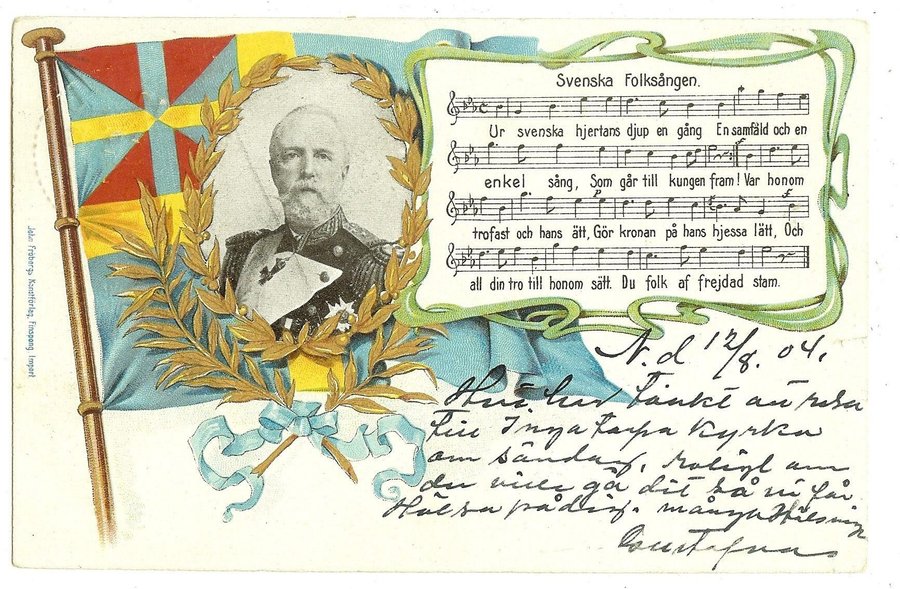 Svenska Folksången.
Ur svenska hjertans djup en gång En samfäld och en
enkel sång, Som går till kungen fram! Var honom
trofast och hans ätt, Gör kronan på hans hjessa lätt, Och
all din tro till honom sätt. Du folk af frejdad stam.
John Fröbergs Konstförlag, Finspong. Import
N.d 12/8. 04.
har tänkt att resa
till Inga torpa Kyrka
om söndag, roligt om
du ville gå dit så vi får
Hälsa på dig. många Hälsning
Gustafva